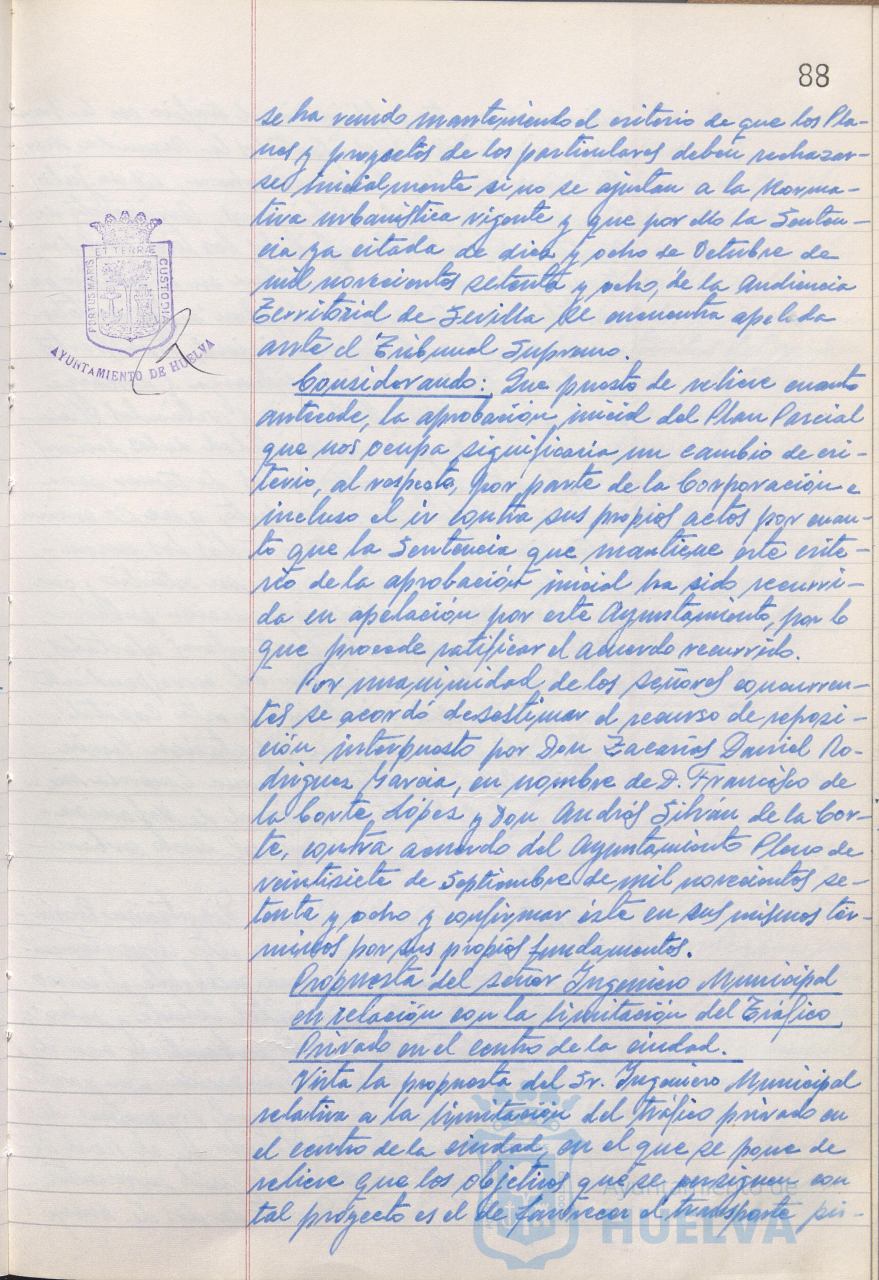 88
se ha venido manteniendo el criterio de que los Pla-
nes y proyectos de los particulares deben rechazar-
se inicialmente si no se ajustan a la Norma-
tiva urbanística vigente y que por ello la Senten-
cia ya citada de diez y ocho de Octubre de
mil novecientos setenta y ocho, de la Audiencia
Territorial de Sevilla se encuentra apelada
ante el Tribunal Supremo.
Considerando: Que puesto de relieve cuanto
antecede, la aprobación inicial del Plan Parcial
que nos ocupa significaría un cambio de cri-
terio, al respecto, por parte de la Corporación e
incluso el ir contra sus propios actos por cuan-
to que la Sentencia que mantiene este crite-
rio de la aprobación inicial ha sido recurri-
da en apelación por este Ayuntamiento, por lo
que procede ratificar el acuerdo recurrido.
Por unanimidad de los señores concurren-
tes se acordó desestimar el recurso de reposi-
ción interpuesto por Don Zacarías Daniel Ro-
driguez Garcia, en nombre de D. Francisco de
la Corte López y Don Andrés Silván de la Cor-
te, contra acuerdo del Ayuntamiento Pleno de
veintisiete de Septiembre de mil novecientos se-
tenta y ocho y confirmar éste en sus mismos tér-
minos por sus propios fundamentos.
Propuesta del señor Ingeniero Municipal
en relación con la limitación del Tráfico
Privado en el centro de la ciudad.
Vista la propuesta del Sr. Ingeniero Municipal
relativa a la limitación del tráfico privado en
el centro de la ciudad, en el que se pone de
relieve que los objetivos que se persiguen con
tal proyecto es el de favorecer el transporte pú-
PORTUS MARIS
ET TERRÆ
CUSTODIA
AYUNTAMIENTO DE HUELVA
Ayuntamiento de
HUELVA